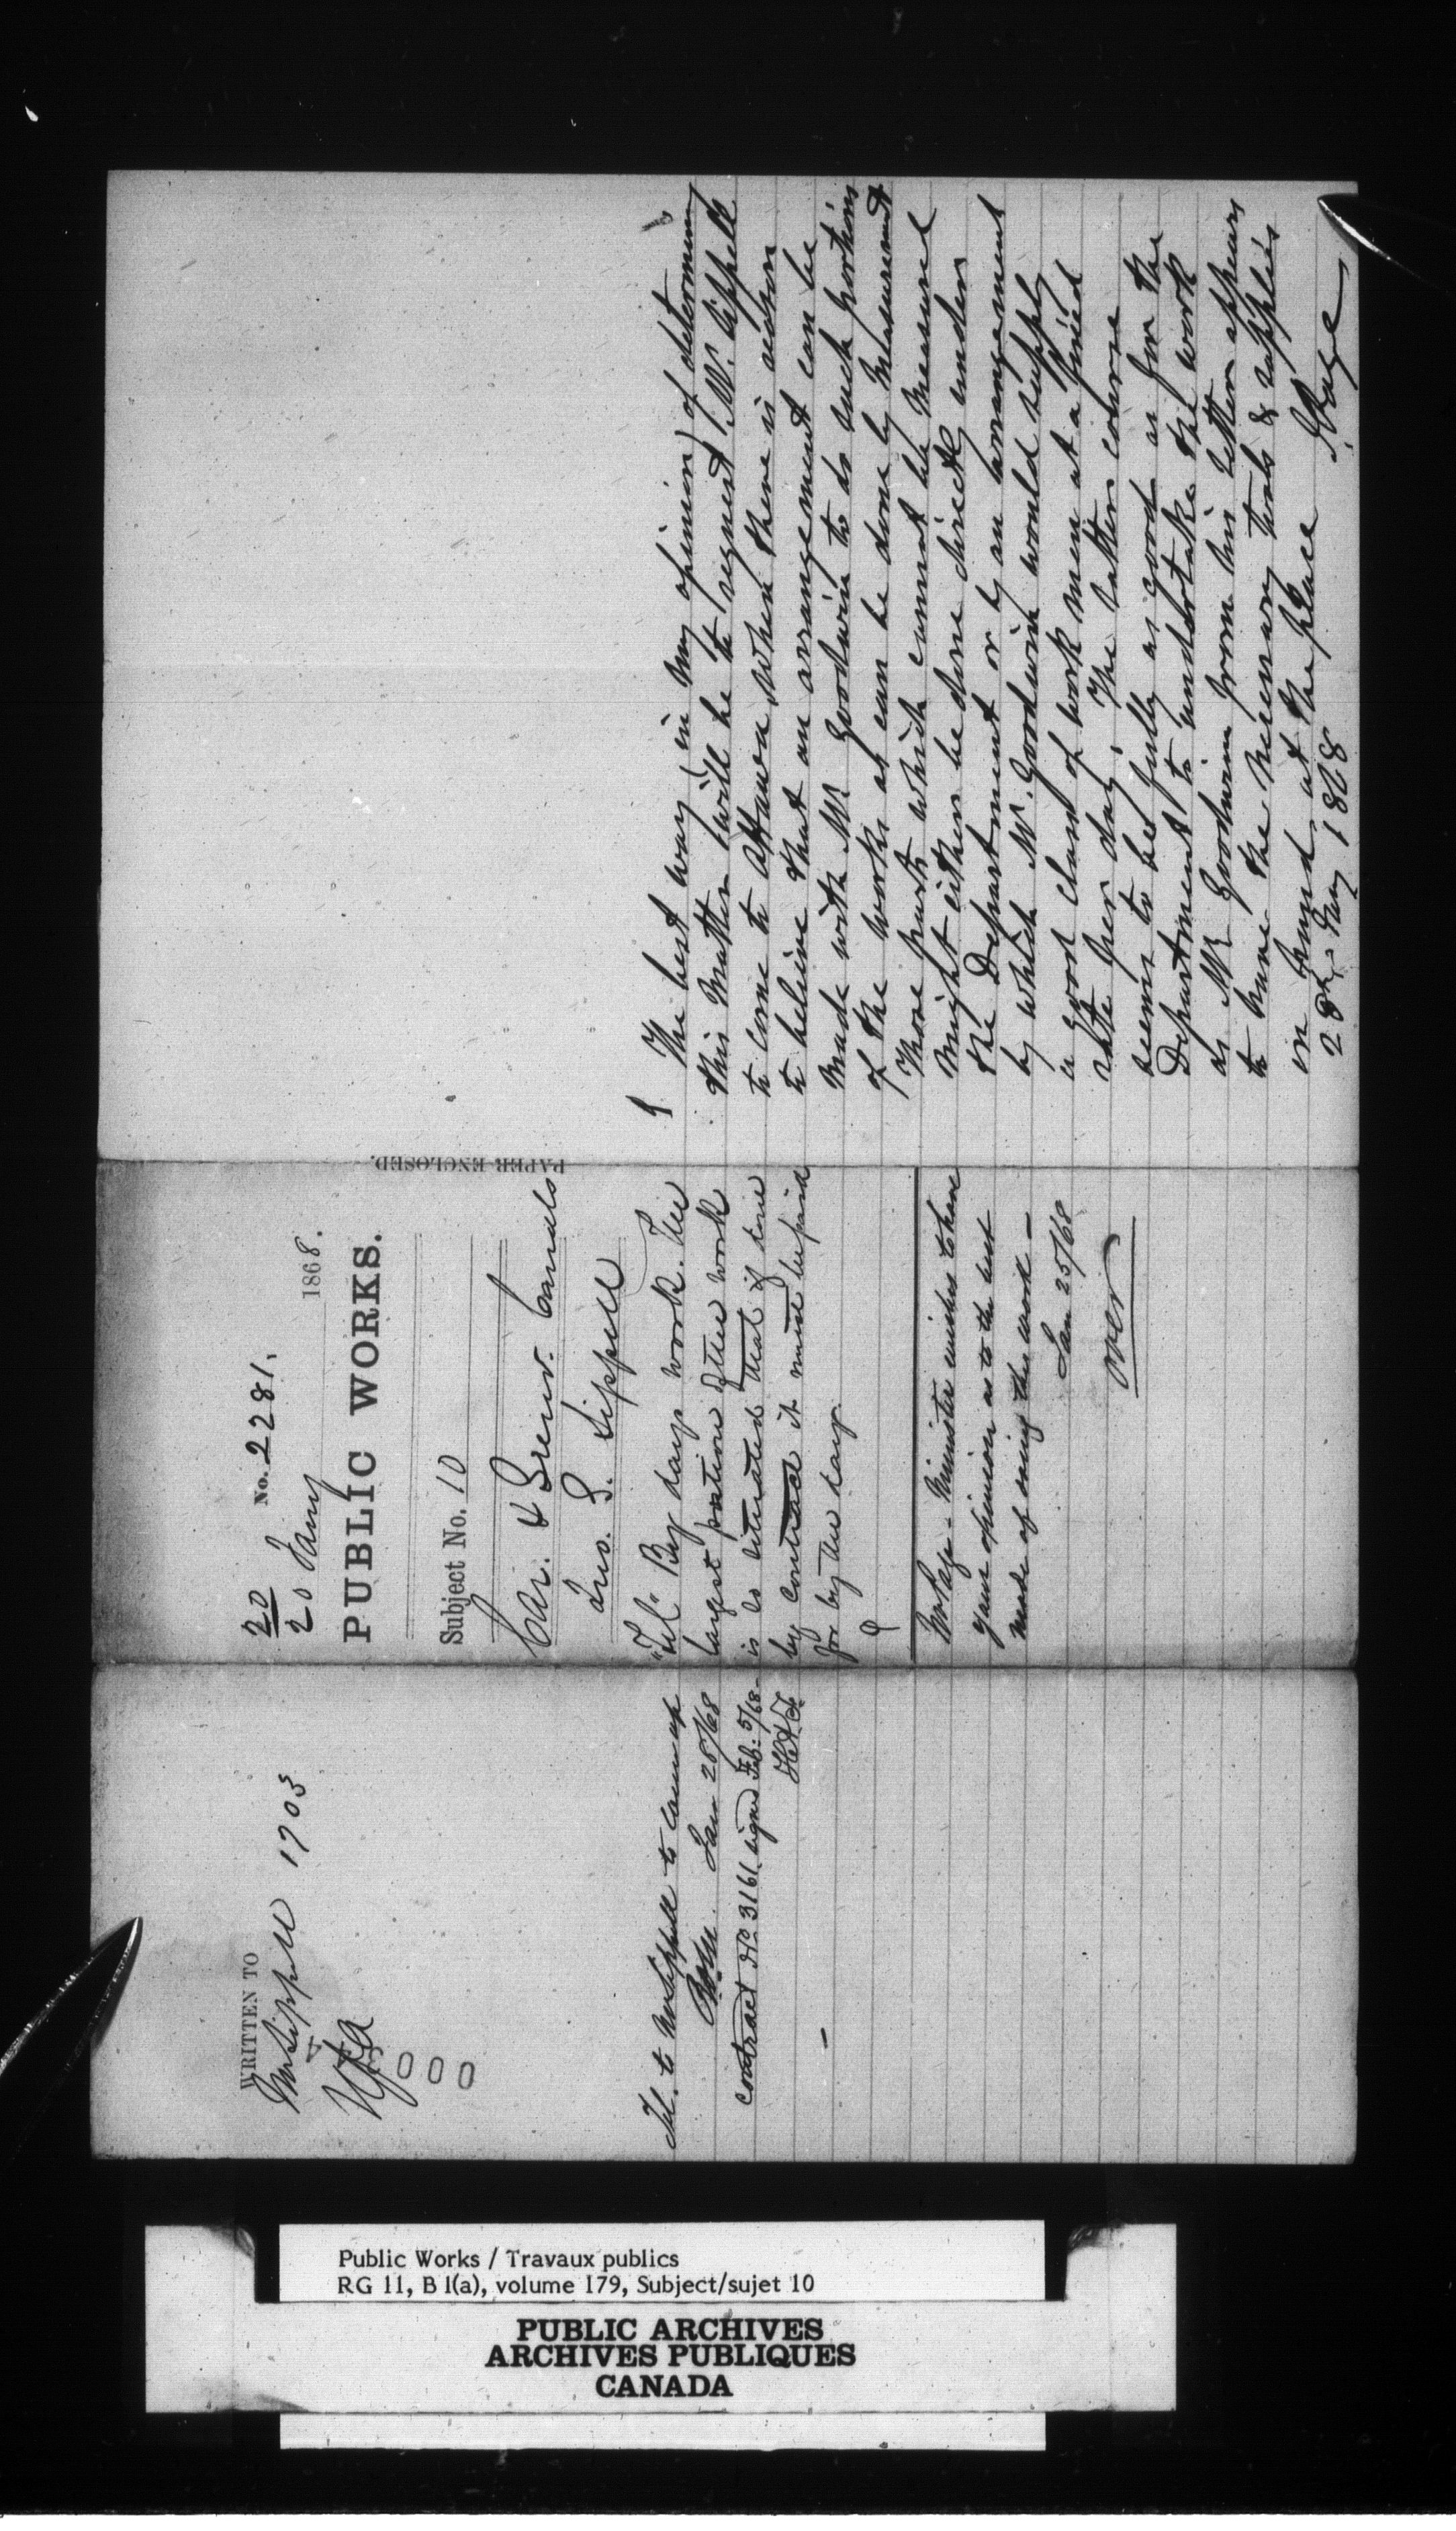 WRITTEN TO
Mr Sippell 1703
000
Tel. to Mr Sippell to come up
Jan 28/68
Contract No. 3161 signed Feb. 5/68
20
20 Jany
No. 2281.
1868.
PUBLIC WORKS.
Subject No. 10
Jno. G. Sippell
"Tel" By day work. The
largest portion of the work
is so situated that if done
by contract it must be paid
for by the day.
Mr Page - Minister wishes to have
your opinion as to the best
mode of doing this work -
Jan 25/68
over
PAPER ENCLOSED.
The best way (in my opinion) of determining
this matter will be to request Mr. Sippell
to come to Ottawa when there is reason
to believe that an arrangement can be
made with Mr Goodwin to do such portions
of the works as can be done by measurement
Those parts which cannot be measured
might either be done directly under
the Department or by an arrangement
by which Mr. Goodwin would supply
a good class of work men at a fixed
rate per day. The latter course
seems to be fully as good as for the
Department to undertake the work
as Mr Goodwin from his letter appears
to have the necessary tools & supplies
on hand at the place
28th Jany 1868 J. Page
Public Works / Travaux publics
RG 11, B 1(a), volume 179, Subject/sujet 10
PUBLIC ARCHIVES
ARCHIVES PUBLIQUES
CANADA